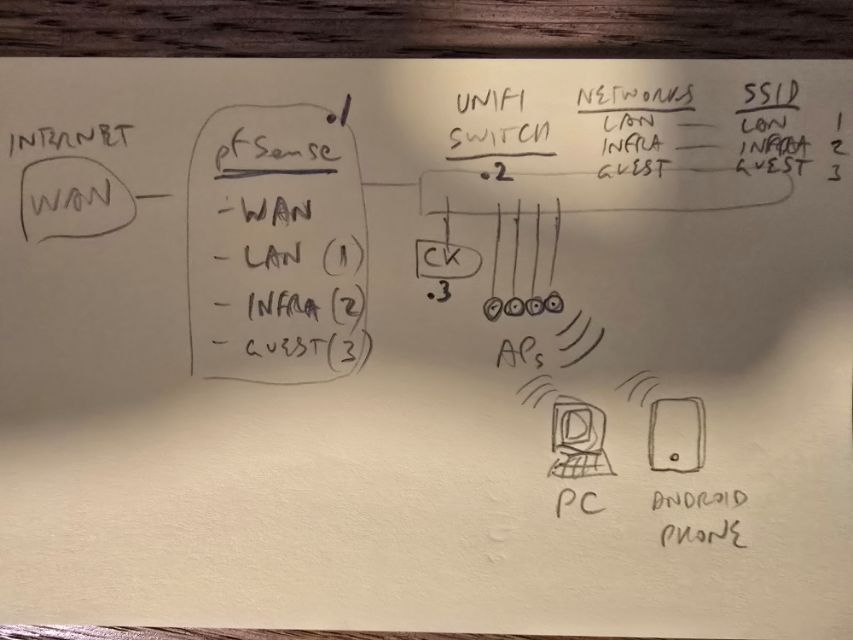 INTERNET
WAN
.1
pfSense
- WAN
- LAN (1)
- INFRA (2)
- GUEST (3)
UNIFI
SWITCH
.2
NETWORKS SSID
LAN — LAN 1
INFRA — INFRA 2
GUEST — GUEST 3
CK
.3
APs
PC
ANDROID
PHONE